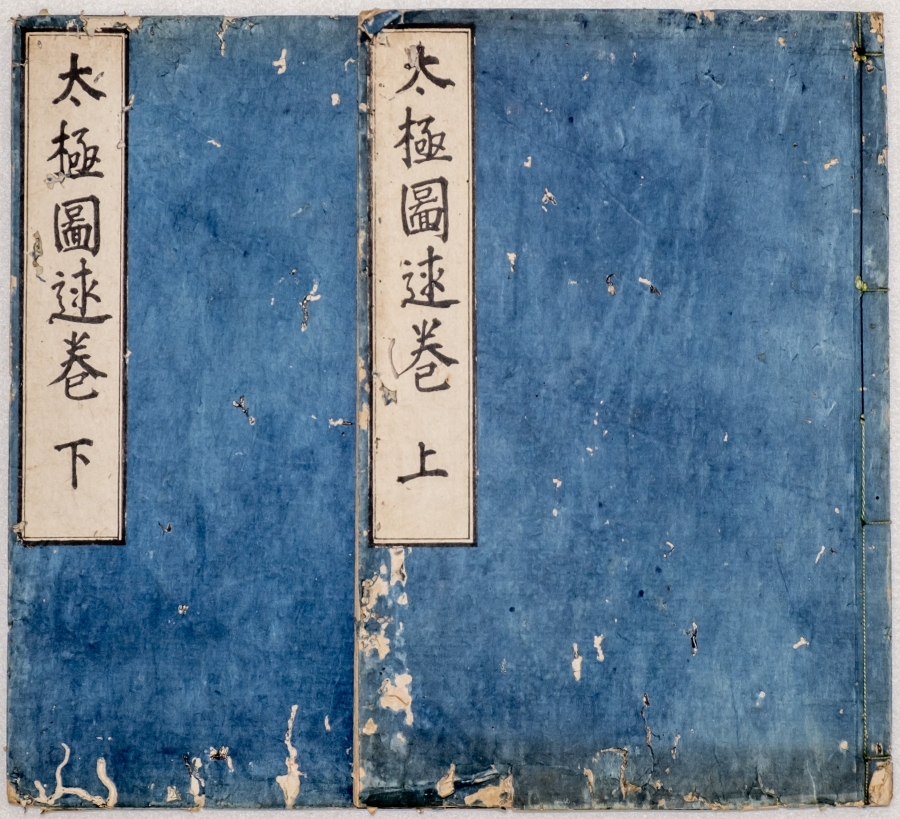 太極圖述卷 上
太極圖述卷 下